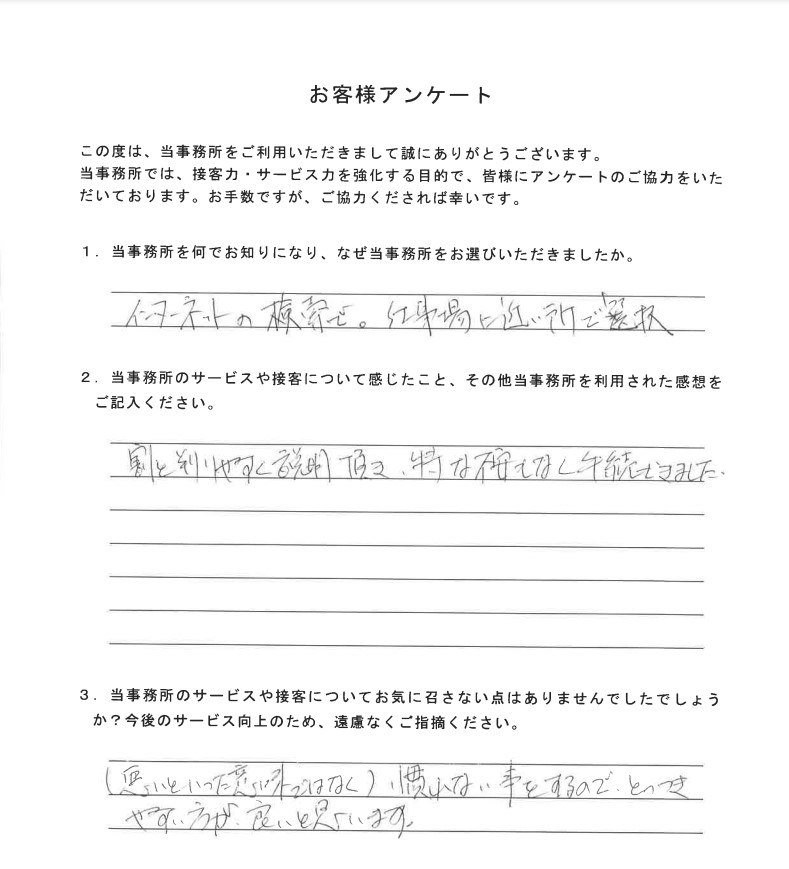 お客様アンケート
この度は、当事務所をご利用いただきまして誠にありがとうございます。
当事務所では、接客力・サービス力を強化する目的で、皆様にアンケートのご協力をいた
だいております。お手数ですが、ご協力くだされば幸いです。
１．当事務所を何でお知りになり、なぜ当事務所をお選びいただきましたか。
インターネットの検索で。仕事場に近い所で選択
２．当事務所のサービスや接客について感じたこと、その他当事務所を利用された感想を
ご記入ください。
割と判りやすく説明頂き、特な不安もなく手続できました。
３．当事務所のサービスや接客についてお気に召さない点はありませんでしたでしょう
か？今後のサービス向上のため、遠慮なくご指摘ください。
(悪いといった意 ではなく) 慣れない事をするので、とっつき
やすい方が、良いと思います。